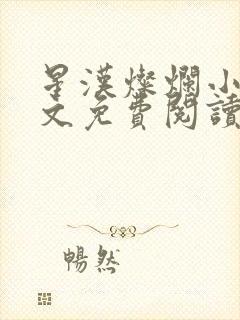 星漢燦爛小
文免費閱讀
暢然